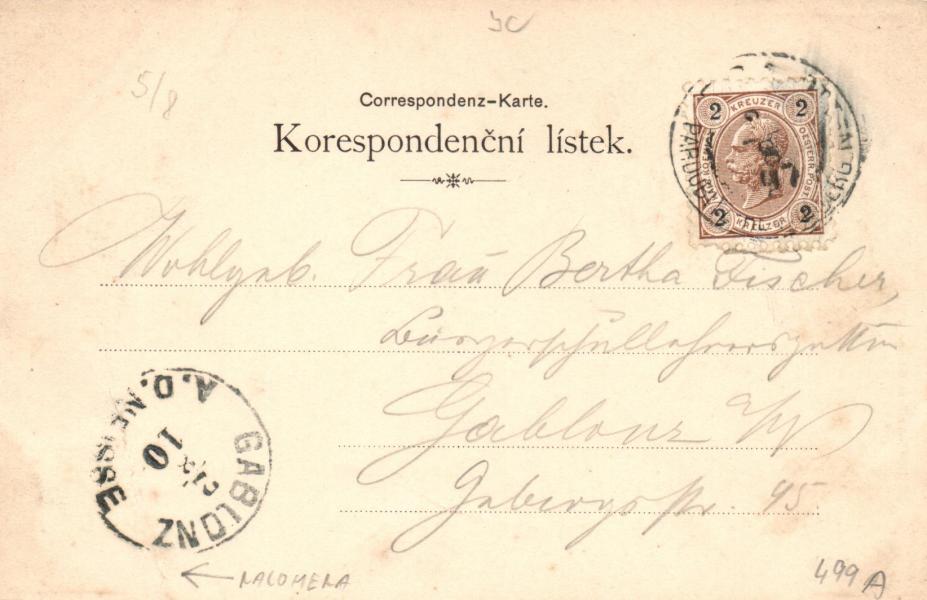 5/8
Correspondenz-Karte.
Korespondenční lístek.
2 KREUZER 2
OESTERR. POST
2 KREUZER 2
Wohlgeb. Frau Bertha Fischer,
Bürgerschullehrersgattin
Gablonz a/N
Gebirgsstr. 95.
GABLONZ A. D. NEISSE
10
← RACOMERA
499 A